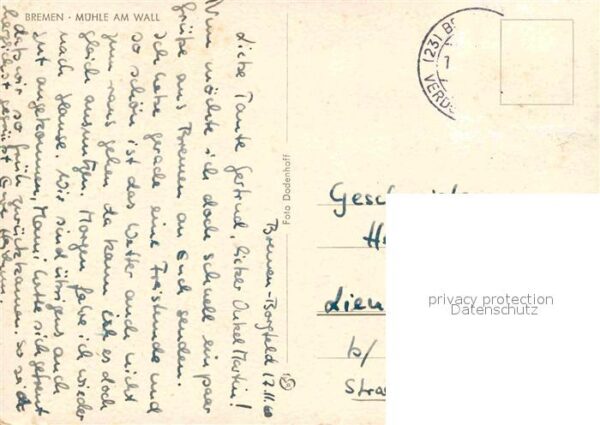 BREMEN · MÜHLE AM WALL
Bremen-Borgfeld 17.11.60
Liebe Tante Gertrud, lieber Onkel Martin!
Nun möchte ich doch schnell ein paar
Grüße aus Bremen an Euch senden.
Ich habe gerade eine Freistunde und
so schön ist das Wetter auch nicht
zum raus gehen da kann ich es doch
gleich ausnutzen. Morgen fahre ich wieder
nach Hause. Wir sind übrigens auch
gut angekommen, Mami hatte sich gefreut
daß wir so früh zurückkamen. So seid
herzlichst gegrüßt
Foto Dodenhoff
(23) B
VERD
Geschwister
H
Lien
b/
Stra
privacy protection
Datenschutz